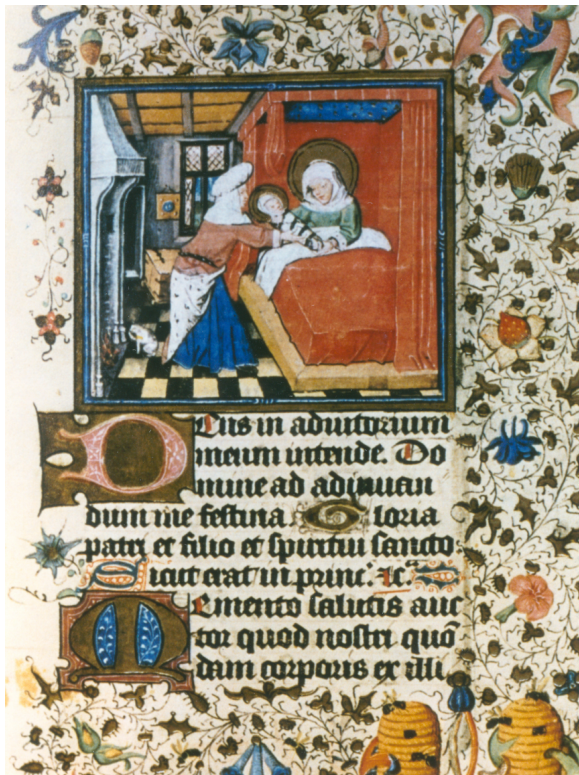 Deus in adiutorium
meum intende. Do
mine ad adiuuan
dum me festina Gloria
patri et filio et spiritui sancto
Sicut erat in princ. ꝛc.
Memento salutis auc
tor quod nostri quō
dam corporis ex illi